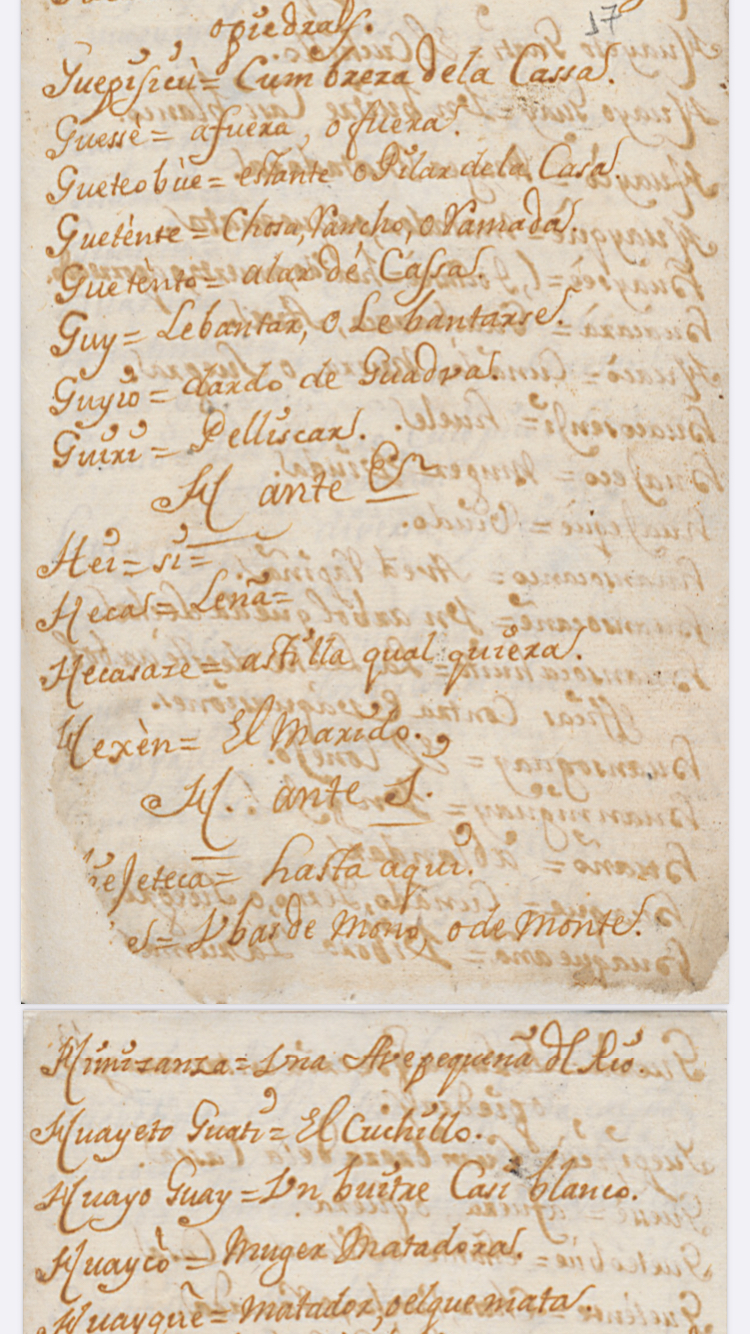 17
o piedras.
Guepisicu = Cumbrera dela Cassa.
Guesse = afuera, o fuera.
Gueteobùe = estante o Pilar dela Casa.
Guetènte = Chosa, Rancho, o Ramada.
Guetènto = alar de Cassa.
Guy = Lebantar, o Lebantarse.
Guyio = dardo de Guadua.
Guiri = Pelliscar.
H ante E
Hei = si =
Hecas = Leña =
Hecasare = astilla qual quiera.
Hexèn = El Marido.
H. ante I.
Jeteca = hasta aqui.
es = Vbas de Mono, o de Monte.
Himizanza = Vna Ave pequeña del Rio.
Huayeto Guati = El Cuchillo.
Huayo Guay = Vn buitre Casi blanco.
Huaycò = Muger Matadora.
Huayquè = Matador, o el que mata.